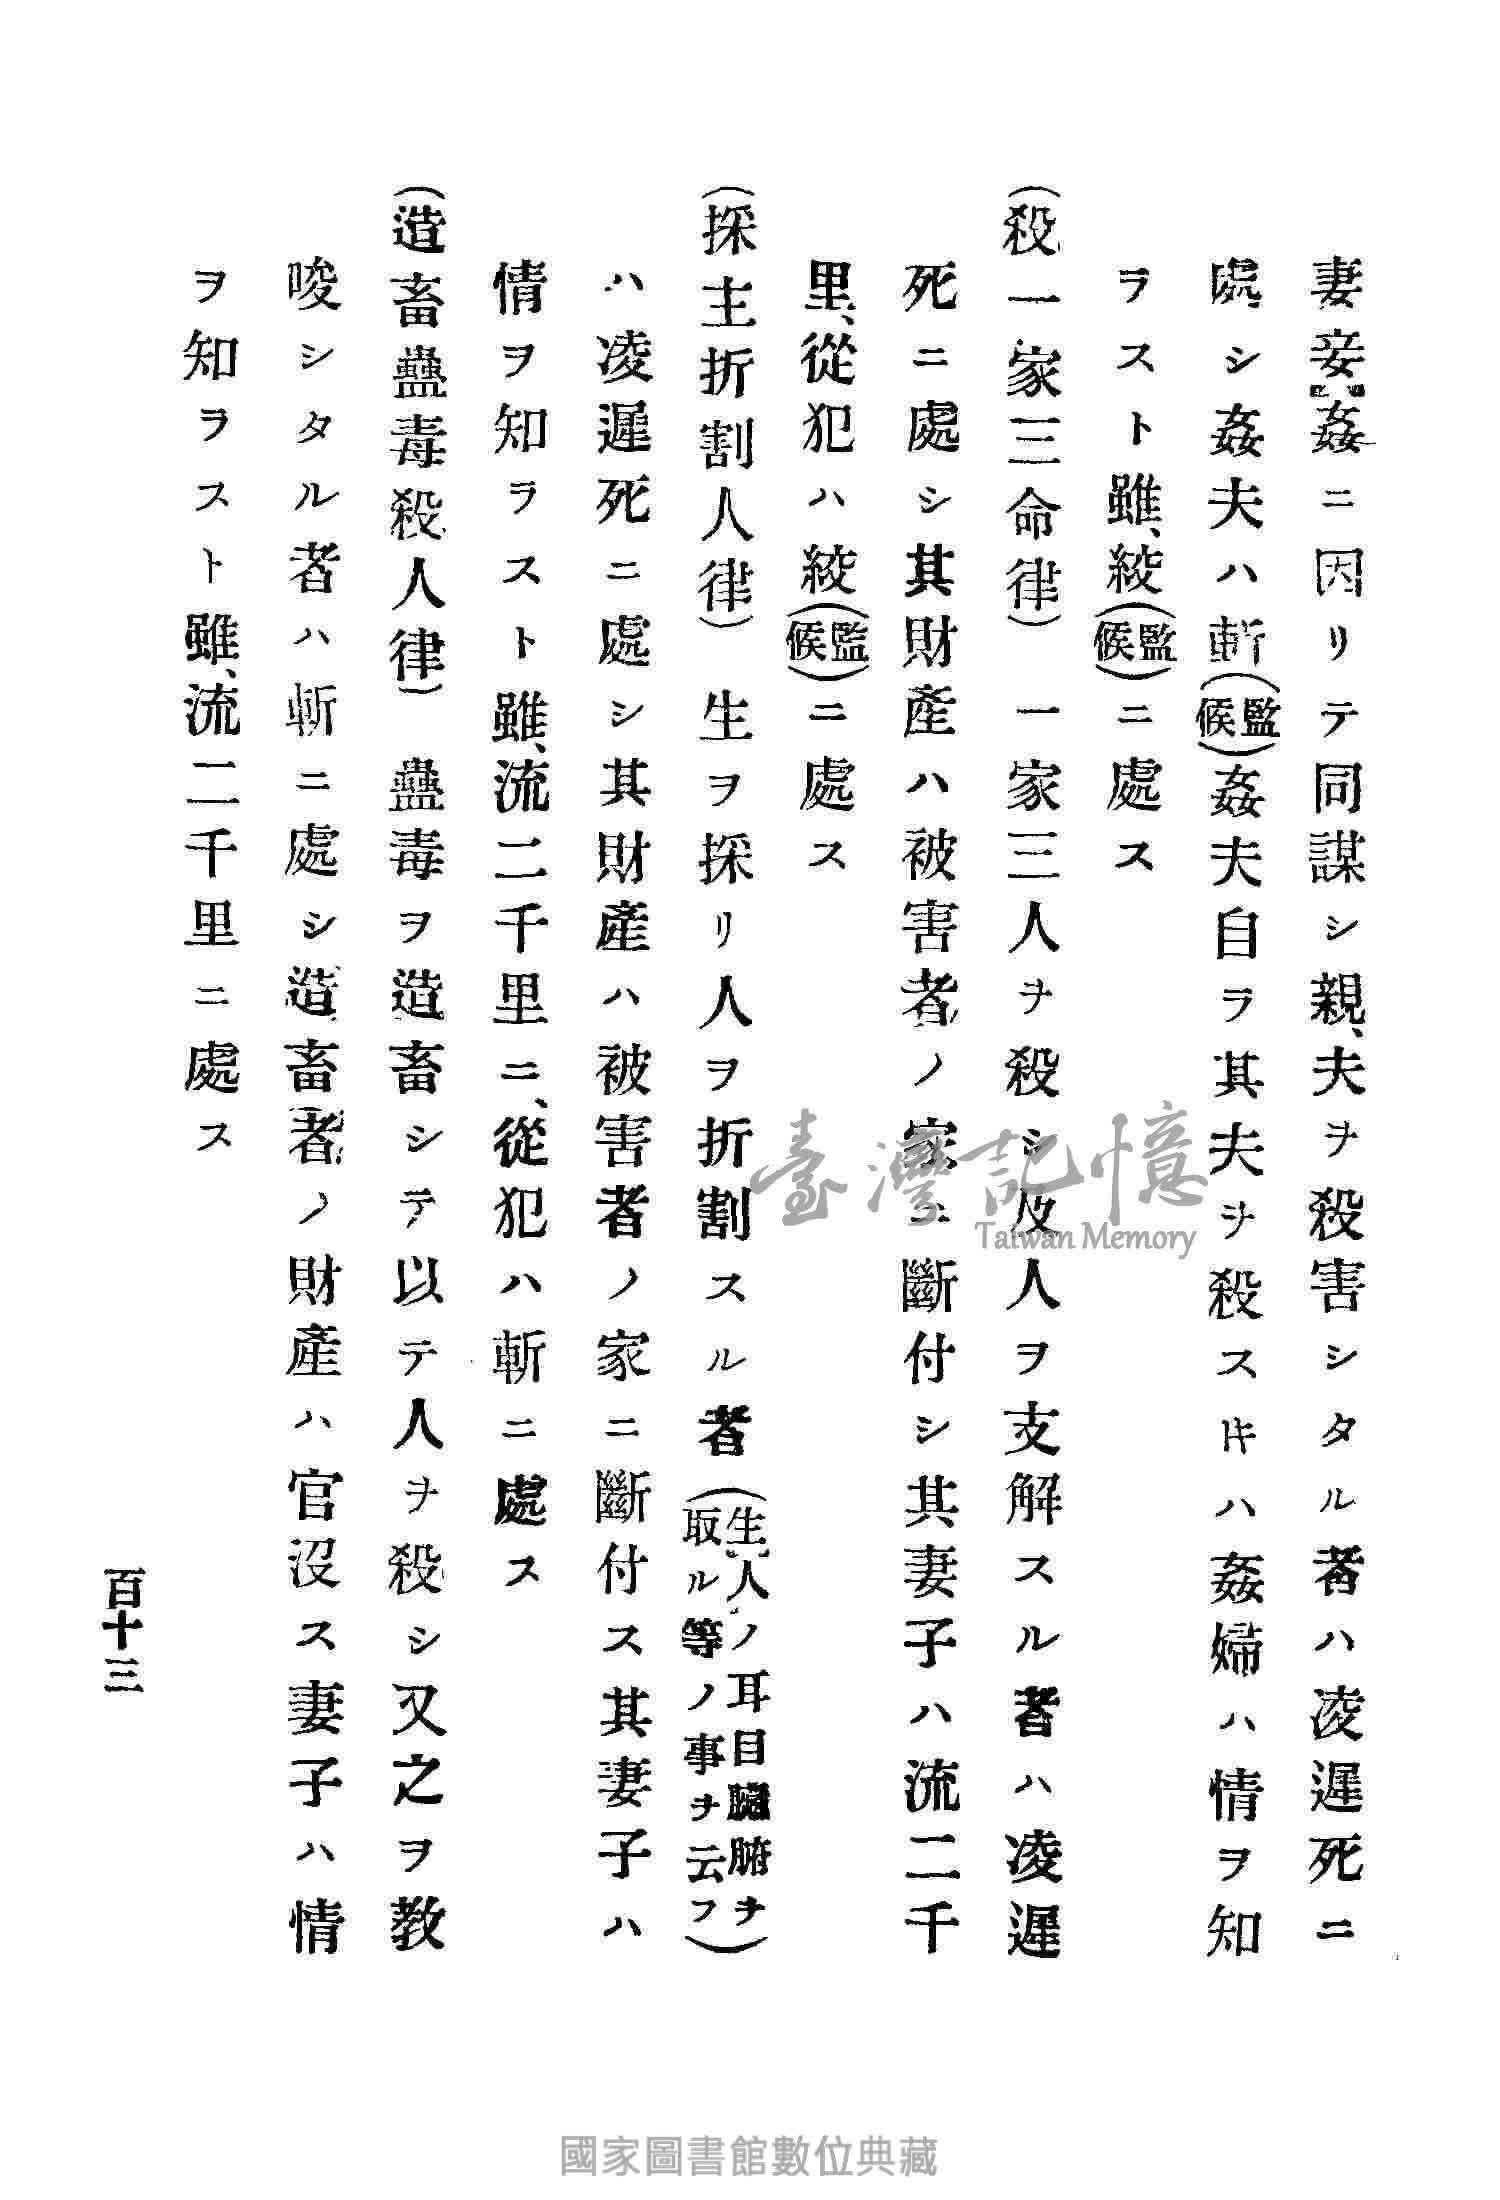 妻妾姦ニ因リテ同謀シ親、夫ヲ殺害シタル者ハ凌遲死ニ
處シ姦夫ハ斬(監候)姦夫自ラ其夫ヲ殺スㇳキハ姦婦ハ情ヲ知
ラスト雖、絞(監候)ニ處ス
(殺一家三命律) 一家三人ヲ殺シ及人ヲ支解スル者ハ凌遲
死ニ處シ其財產ハ被害者ノ家ニ斷付シ其妻子ハ流二千
里、從犯ハ絞(監候)ニ處ス
(採生折割人律) 生ヲ採リ人ヲ折割スル者(生人ノ耳目臟腑ヲ取ル等ノ事ヲ云フ)
ハ凌遲死ニ處シ其財產ハ被害者ノ家ニ斷付ス其妻子ハ
情ヲ知ラスト雖、流二千里ニ、從犯ハ斬ニ處ス
(造畜蠱毒殺人律) 蠱毒ヲ造畜シテ以テ人ヲ殺シ又之ヲ教
唆シタル者ハ斬ニ處シ造畜者ノ財產ハ官沒ス妻子ハ情
ヲ知ラスト雖、流二千里ニ處ス
百十三
臺灣記憶
Taiwan Memory
國家圖書館數位典藏